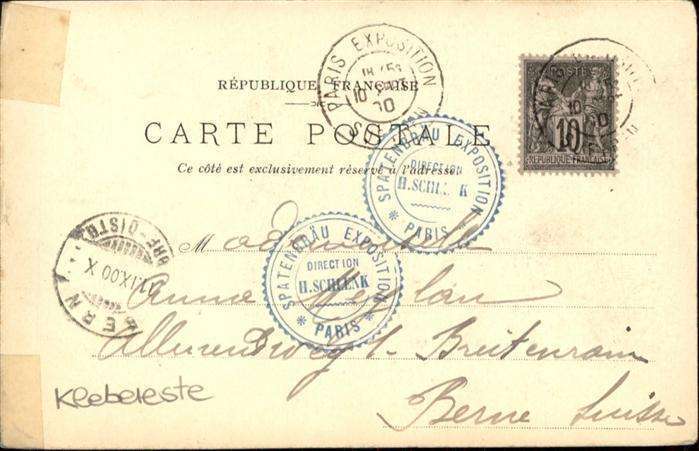 PARIS EXPOSITION
10
00
POSTES
10
RÉPUBLIQUE FRANÇAISE
RÉPUBLIQUE FRANÇAISE
CARTE POSTALE
Ce côté est exclusivement réservé à l'adresse
SPATENBRÄU EXPOSITION
DIRECTION
H. SCHLENK
* PARIS *
SPATENBRÄU EXPOSITION
DIRECTION
H. SCHLENK
* PARIS *
BERN
IX.00 X
Mademoiselle
Anna
Breitenrain
Berne Suisse
Klebereste